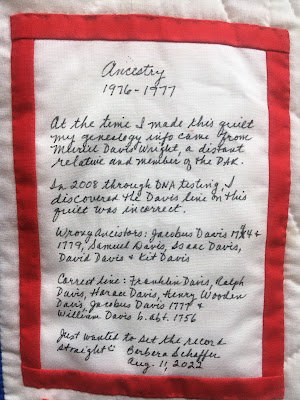 Ancestry
1976-1977
At the time I made this quilt
my genealogy info came from
Merril Davis Wright, a distant
relative and member of the DAR.
In 2008 through DNA testing, I
discovered the Davis line on this
quilt was incorrect.
Wrong Ancestors: Jacobus Davis 1744
1779, Samuel Davis, Isaac Davis,
David Davis & Kit Davis
Correct line: Franklin Davis, Ralph
Davis, Horace Davis, Henry Wooden
Davis, Jacobus Davis 1779 &
William Davis b. abt. 1756
Just wanted to set the record
straight
Barbara Schaffer
Aug. 11, 2022